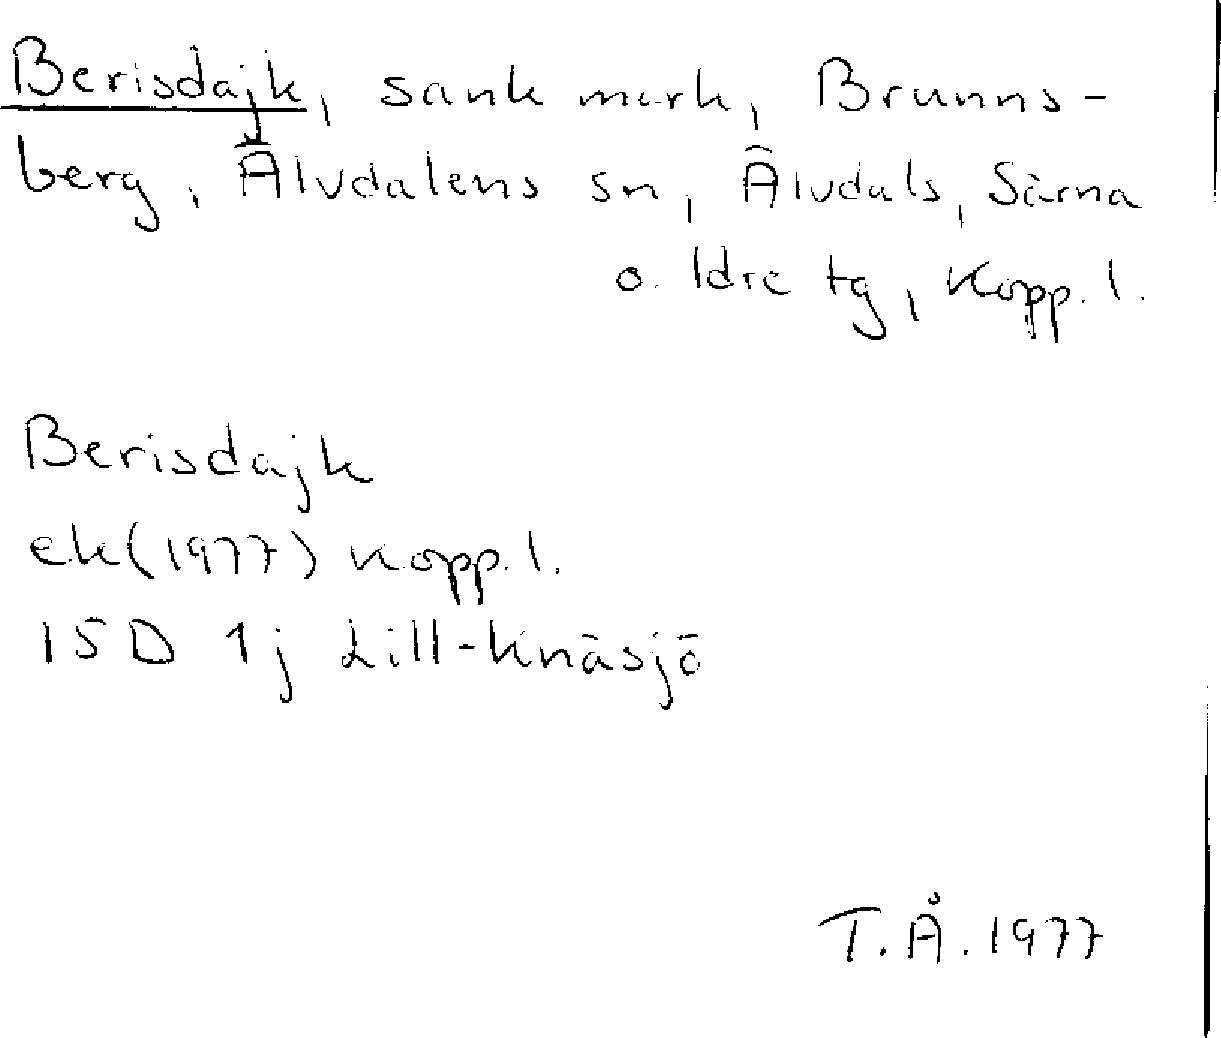 Berisdajk, sank mark, Brunns-
berg, Älvdalens sn, Älvdals, Särna
o. Idre tg, Kopp. l.
Berisdajk
ek(1977) Kopp. l.
15D 1j Lill-Knäsjö
T.Å. 1977